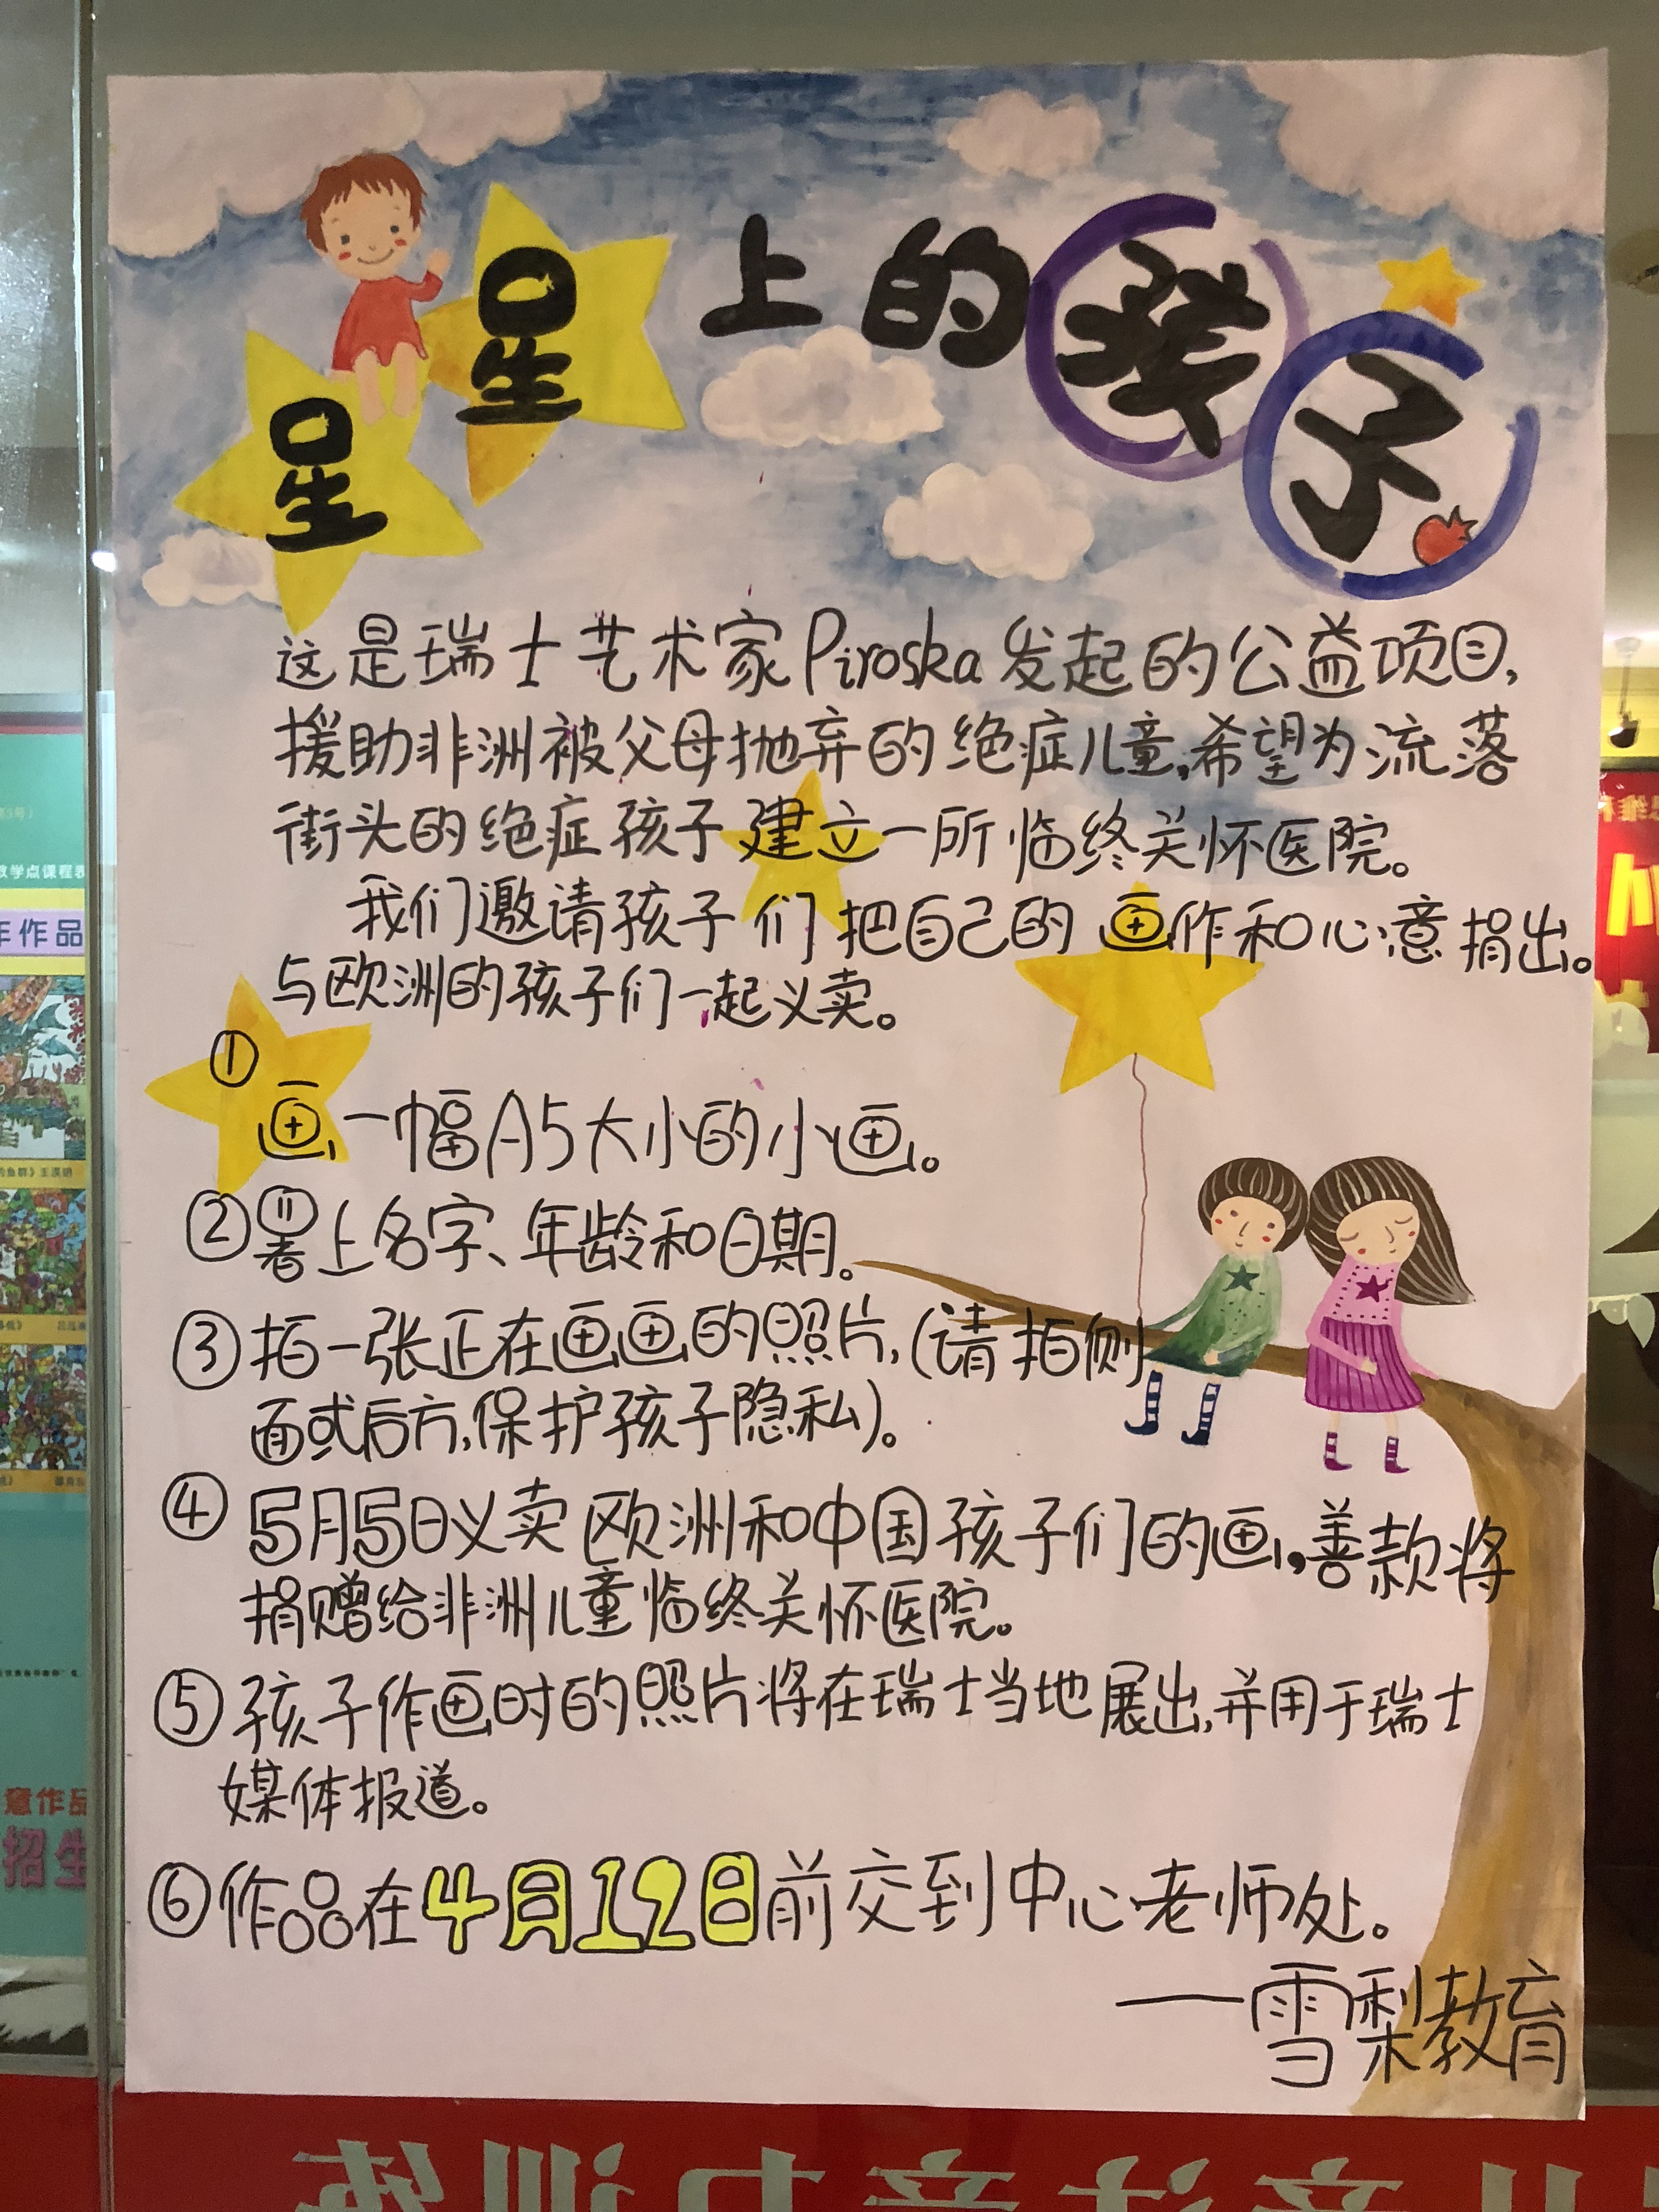 星星上的孩子
这是瑞士艺术家Piroska发起的公益项目,
援助非洲被父母抛弃的绝症儿童,希望为流落
街头的绝症孩子建立一所临终关怀医院。
我们邀请孩子们把自己的画作和心意捐出。
与欧洲的孩子们一起义卖。
①
画一幅A5大小的小画。
②署上名字、年龄和日期。
③拍一张正在画画的照片,(请拍侧
面或后方,保护孩子隐私)。
④5月5日义卖欧洲和中国孩子们的画,善款将
捐赠给非洲儿童临终关怀医院。
⑤孩子作画时的照片将在瑞士当地展出,并用于瑞士
媒体报道。
⑥作品在4月12日前交到中心老师处。
——雪梨教育
教学点课程表
作品
意作品
招生